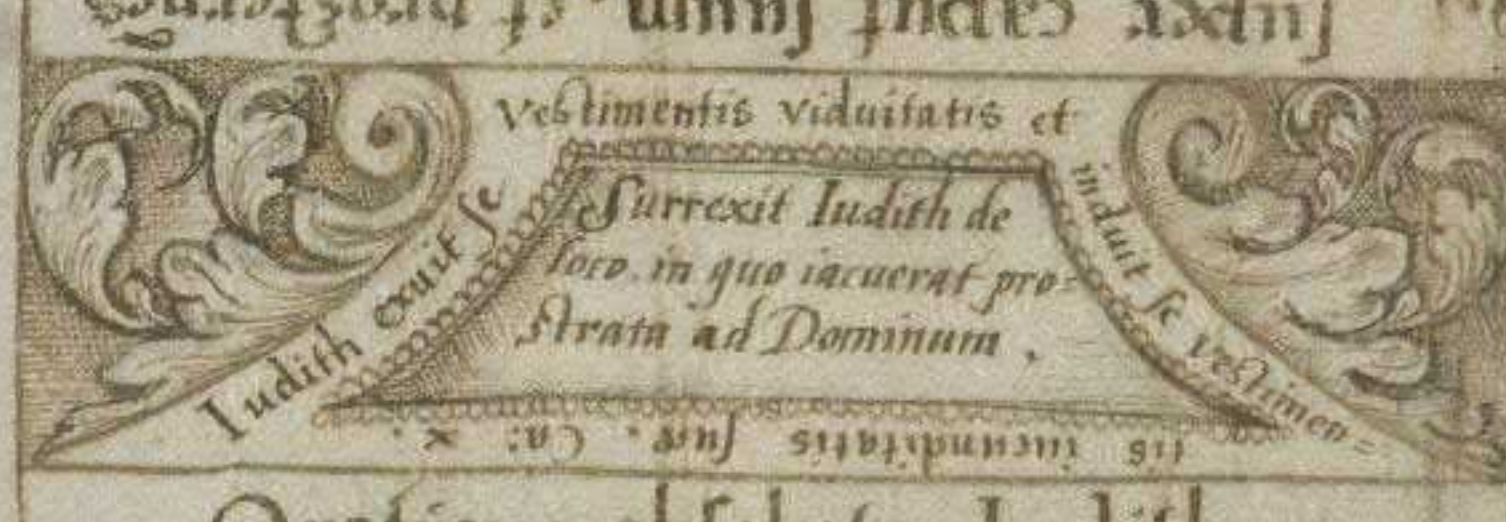 super caput suum, et prosternēs
Iudith exuit se
vestimentis viduitatis et
induit se vestimen=
tis iucunditatis suæ. Ca: x.
Surrexit Iudith de
loco. in quo iacuerat pro=
strata ad Dominum.